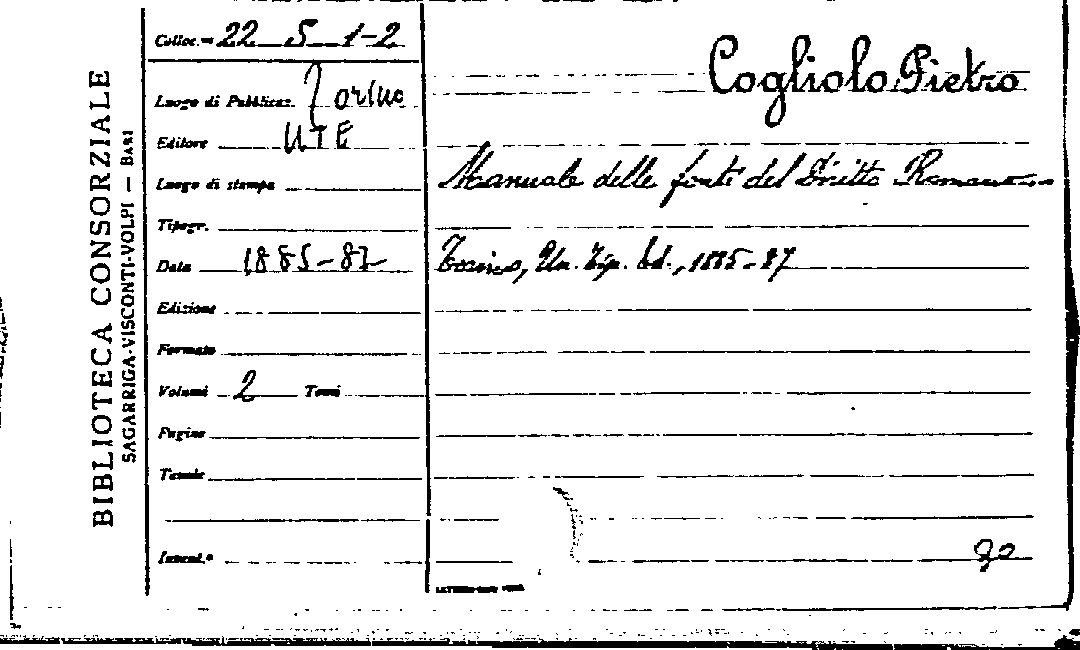 BIBLIOTECA CONSORZIALE
SAGARRIGA-VISCONTI-VOLPI — BARI
Colloc.ne 22 5 1-2
Luogo di Pubblicaz. Torino
Editore UTE
Luogo di stampa
Tipogr.
Data 1885-87
Edizione
Formato
Volumi 2 Tomi
Pagine
Tavole
Invent.º
Cogliolo Pietro
Manuale delle fonti del Diritto Romano
Torino, Un. Tip. Ed., 1885-87